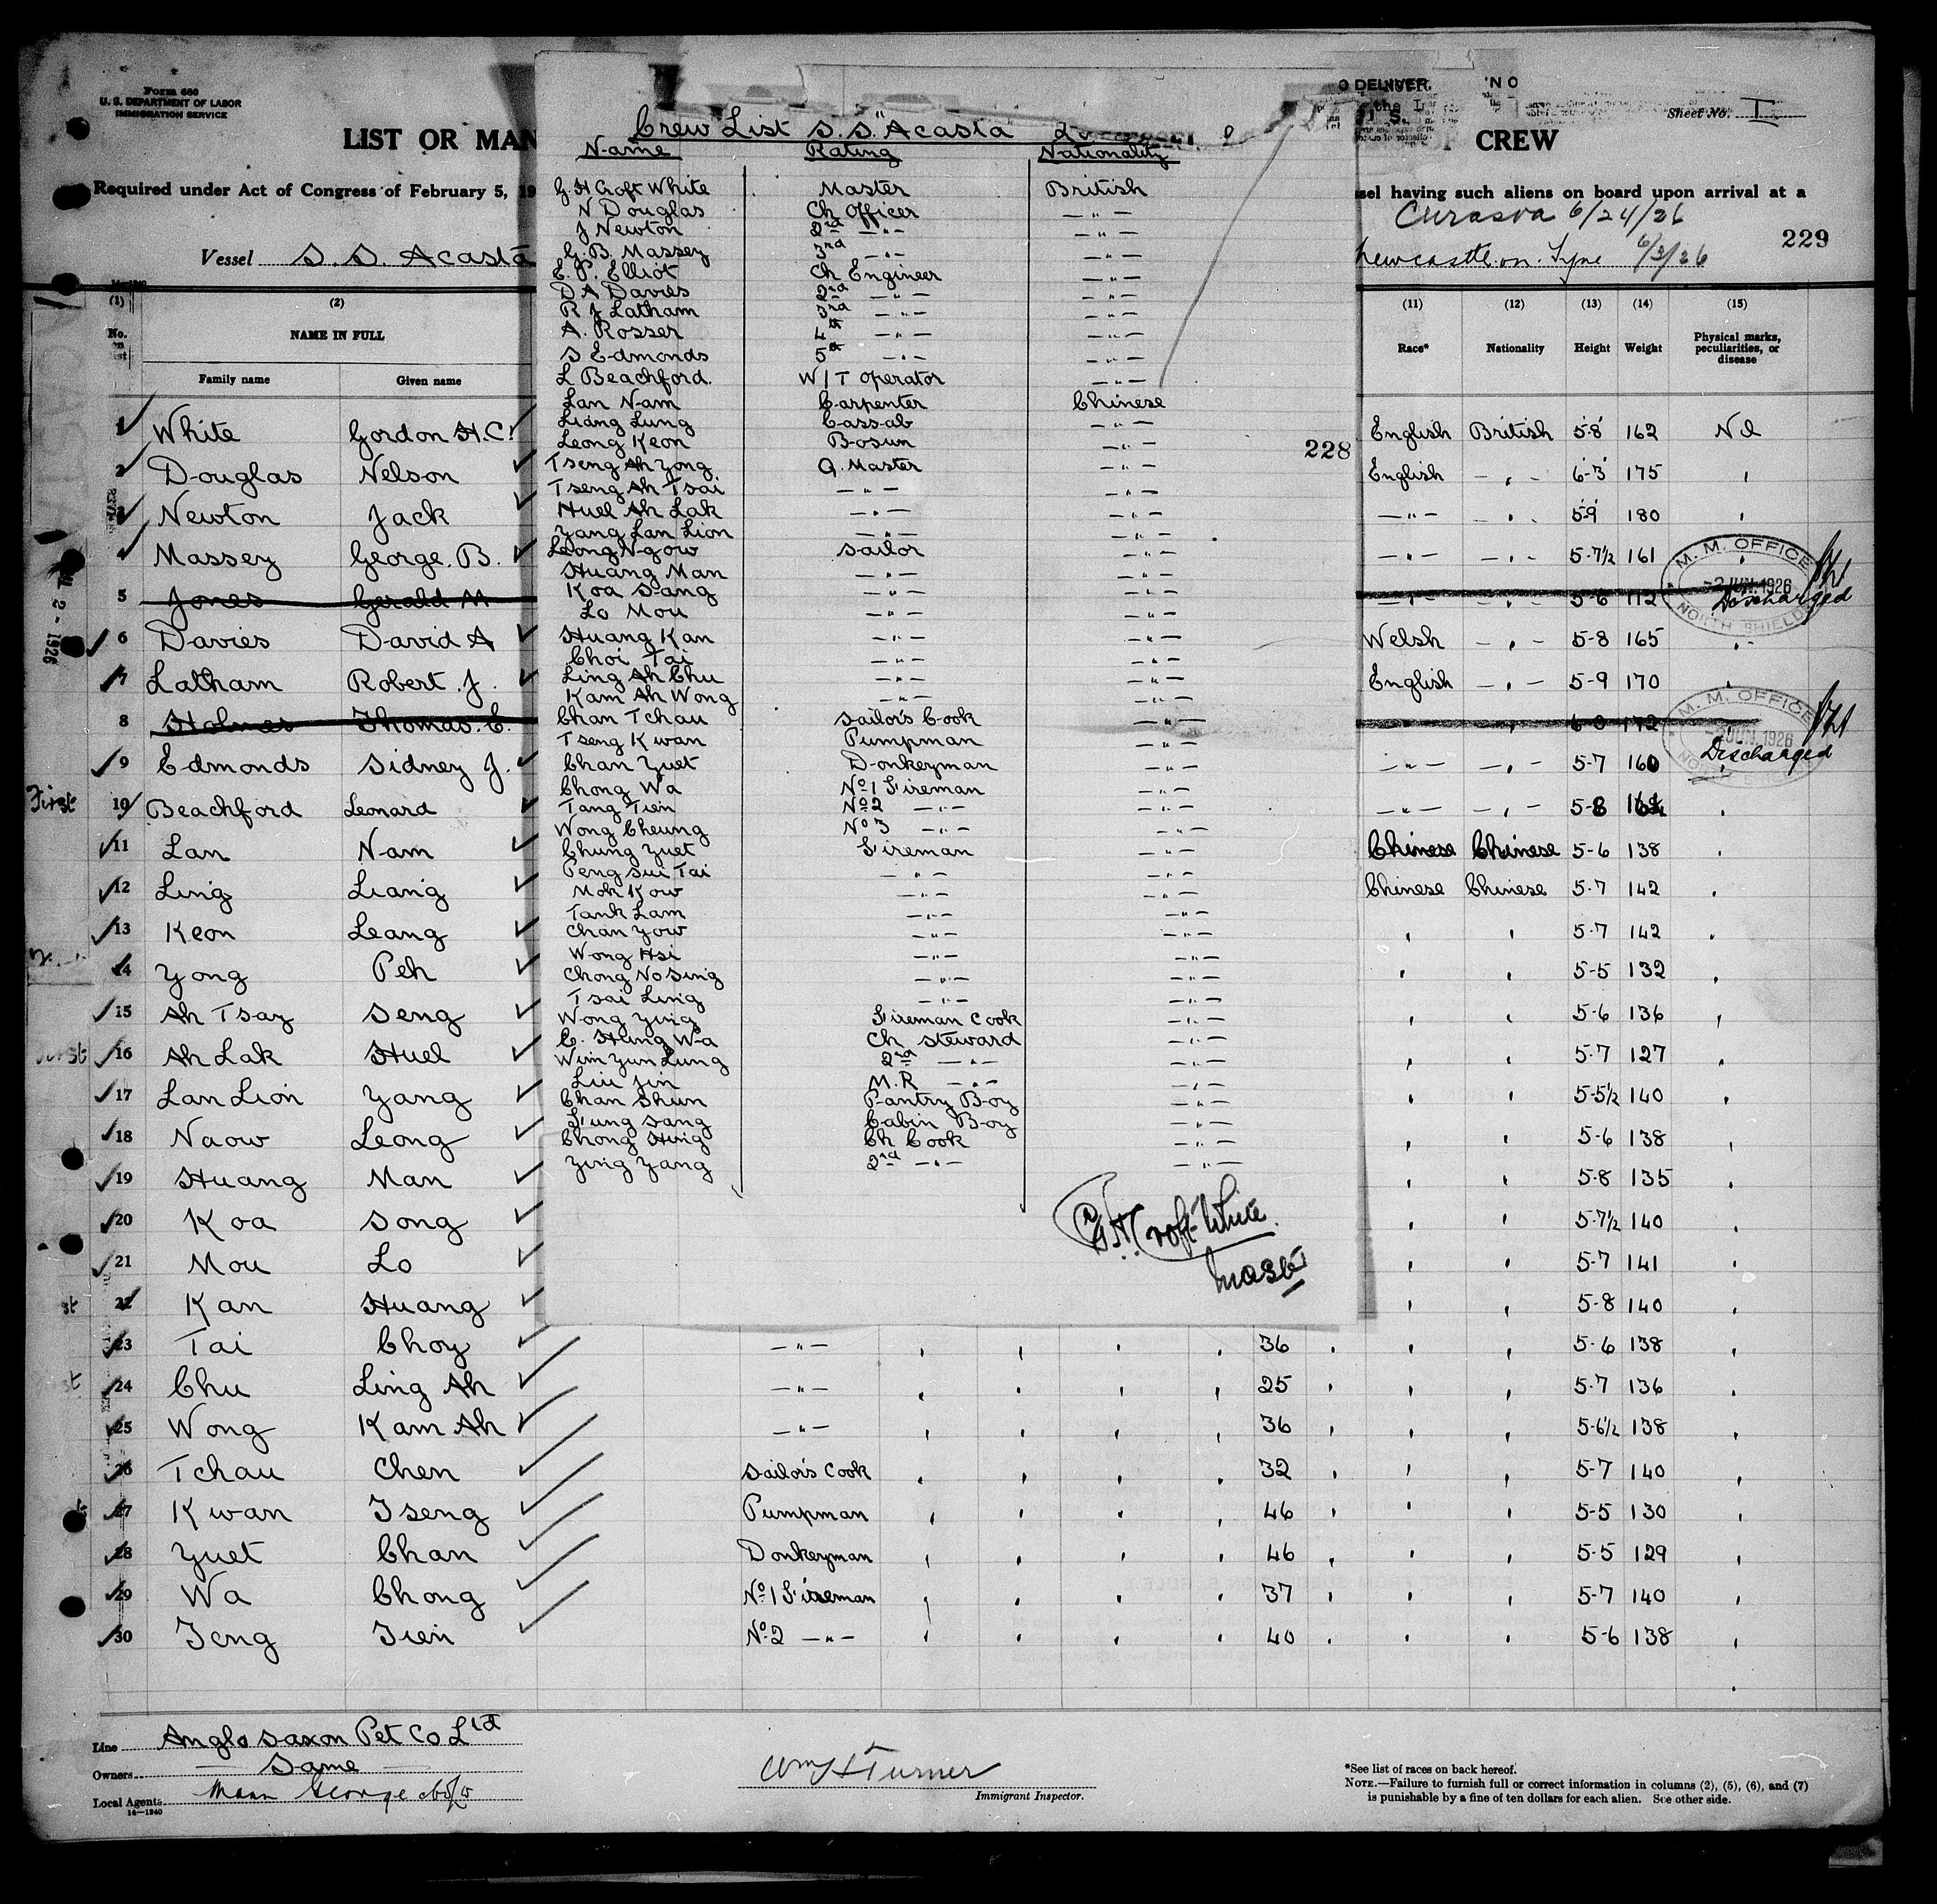 Form 680
U. S. DEPARTMENT OF LABOR
IMMIGRATION SERVICE
LIST OR MAN
CREW
Sheet No. I
Required under Act of Congress of February 5, 19
sel having such aliens on board upon arrival at a
Curasva 6/24/26
229
Vessel S. S. Acasta
Newcastle on Tyne 6/3/26
Crew List S.S. "Acasta"
Name Rating Nationality
G. H Croft White Master British
N Douglas Ch Officer —"—
J Newton 2nd —"— —"—
G. B. Massey 3rd —"— —"—
E. P. Elliot Ch Engineer —"—
D A Davies 2nd —"— —"—
R J Latham 3rd —"— —"—
A. Rosser 4th —"— —"—
S Edmonds 5th —"— —"—
L Beachford. W/T operator —"—
Lan Nam Carpenter Chinese
Liang Lung Cassab —"—
Leong Keon Bosun —"—
Tseng Ah Yong Q. Master —"—
Tseng Ah Tsai —"— —"—
Huel Ah Lak —"— —"—
Yang Lan Lion —"— —"—
Leong Ngow Sailor —"—
Huang Man —"— —"—
Koa Sang —"— —"—
Lo Mou —"— —"—
Huang Kan —"— —"—
Choi Tai —"— —"—
Ling Ah Chu —"— —"—
Kam Ah Wong —"— —"—
Chan Tchau Sailor's Cook —"—
Tseng Kwan Pumpman —"—
Chan Yuet Donkeyman —"—
Chong Wa No 1 Fireman —"—
Tang Tien No 2 —"— —"—
Wong Cheung No 3 —"— —"—
Chung Yuet Fireman —"—
Peng Sui Tai —"— —"—
Moh Kow —"— —"—
Tank Lam —"— —"—
Chan Yow —"— —"—
Wong Hsi —"— —"—
Chong No Sing —"— —"—
Tsai Ling —"— —"—
Wong Ying Fireman Cook —"—
C. Hung Wa Ch Steward —"—
Wim Yun Lung 2nd —"— —"—
Liu Jin M.R —"— —"—
Chan Shun Pantry Boy —"—
Fung Sang Cabin Boy —"—
Chong Hing Ch Cook —"—
Ying Yang 2nd —"— —"—
G H Croft-White
Master
228
(1) (2) (11) (12) (13) (14) (15)
No. on list NAME IN FULL Race* Nationality Height Weight Physical marks, peculiarities, or disease
Family name Given name
1 White Gordon H.C. English British 5-8 162 Nil
2 Douglas Nelson English —"— 6-3 175
3 Newton Jack —"— —"— 5-9 180
4 Massey George. B. —"— —"— 5-7½ 161
5 Jones Gerald M —"— —"— 5-6 112 Discharged
M. M. OFFICE
-2 JUN. 1926
NORTH SHIELDS
6 Davies David A Welsh —"— 5-8 165
7 Latham Robert. J. English —"— 5-9 170
8 Holmes Thomas. E. 6-0 172
M. M. OFFICE
-2 JUN. 1926
Discharged
9 Edmonds Sidney J. —"— —"— 5-7 160
First 10 Beachford Leonard —"— —"— 5-8
11 Lan Nam Chinese Chinese 5-6 138
12 Ling Liang Chinese Chinese 5-7 142
13 Keon Leang " " 5-7 142
14 Yong Peh " " 5-5 132
15 Ah Tsay Seng " " 5-6 136
16 Ah Lak Huel " " 5-7 127
17 Lan Lion Yang " " 5-5½ 140
18 Naow Leong " " 5-6 138
19 Huang Man " " 5-8 135
20 Koa Song " " 5-7½ 140
21 Mou Lo " " 5-7 141
22 Kan Huang " " 5-8 140
23 Tai Choy —"— 36 " " 5-6 138
24 Chu Ling Ah —"— 25 " " 5-7 136
25 Wong Kam Ah —"— 36 " " 5-6½ 138
26 Tchau Chen Sailor's Cook 32 " " 5-7 140
27 Kwan Tseng Pumpman 46 " " 5-5 130
28 Yuet Chan Donkeyman 46 " " 5-5 129
29 Wa Chong No 1 Fireman 37 " " 5-7 140
30 Teng Tien No 2 —"— 40 " " 5-6 138
Line Anglo Saxon Pet Co Ltd
Owners Same
Local Agents Mann George
14—1240
Wm H Turner
Immigrant Inspector.
*See list of races on back hereof.
NOTE.—Failure to furnish full or correct information in columns (2), (5), (6), and (7)
is punishable by a fine of ten dollars for each alien. See other side.